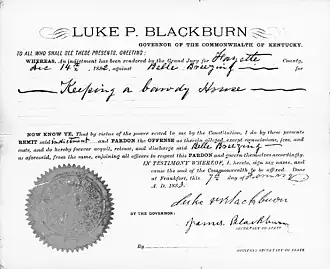 LUKE P. BLACKBURN
GOVERNOR OF THE COMMONWEALTH OF KENTUCKY.
TO ALL WHO SHALL SEE THESE PRESENTS, GREETING:
WHEREAS, An indictment has been rendered by the Grand Jury for Fayette County,
Dec 14th 1882 against Belle Breezing for
Keeping a bawdy House
NOW KNOW YE, That by virtue of the power vested in me by the Constitution, I do by these presents
REMIT said indictment and PARDON the OFFENSE as therein alleged, except commissions, fees, and
costs, and do hereby forever acquit, release, and discharge said Belle Breezing
as aforesaid, from the same, enjoining all officers to respect this PARDON and govern themselves accordingly.
IN TESTIMONY WHEREOF, I hereto, sign my name, and
cause the seal of the Commonwealth to be affixed. Done
at Frankfort, this 9th day of January
A. D. 1883.
Luke P Blackburn
BY THE GOVERNOR:
James Blackburn
SECRETARY OF STATE
By
ASSISTANT SECRETARY OF STATE